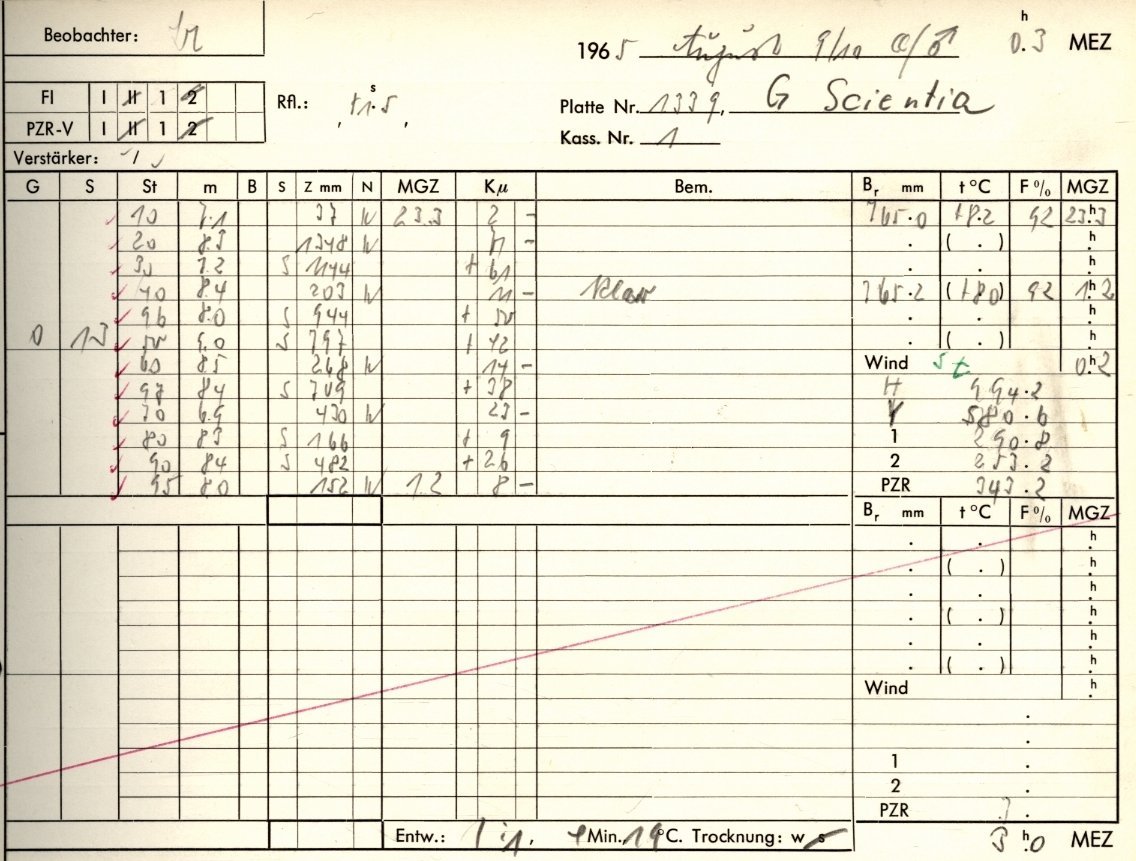 Beobachter:
1965 August 9/10 ☾/♂ 0.3 h MEZ
FI I II 1 2
Rfl.: +1.5 s
Platte Nr. 1339, G Scientia
PZR-V I II 1 2
Kass. Nr. 1
Verstärker:
G S St m B S Z mm N MGZ Kμ Bem. Br mm t°C F% MGZ
10 7.1 37 W 23.3 2 – 765.0 +8.2 92 23.3 h
20 8.3 1348 W – . ( . ) h
30 7.2 S 1144 + 61 . . h
40 8.4 203 W 11 – klar 765.2 (+80) 92 1.2 h
96 8.0 S 944 + 50 . . h
0 13 50 9.0 S 797 + 42 . ( . ) h
60 85 268 W 14 – Wind St 0.2 h
97 84 S 709 + 38 H 994.2
70 6.9 430 W 23 – V 580.6
80 83 S 166 + 9 1 290.8
90 84 S 482 + 26 2 253.2
95 80 152 W 1.2 8 – PZR 343.2
Br mm t°C F% MGZ
. . h
. ( . ) h
. . h
. ( . ) h
. . h
. ( . ) h
Wind h
1 .
2 .
PZR .
Entw.: Min. 19°C. Trocknung: w s
3 h 0 MEZ